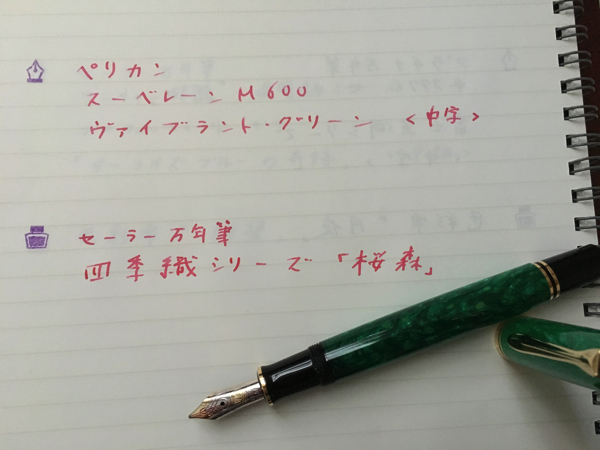 ペリカン
スーベレーン M600
ヴァイブラント・グリーン <中字>
セーラー万年筆
四季織シリーズ「桜森」